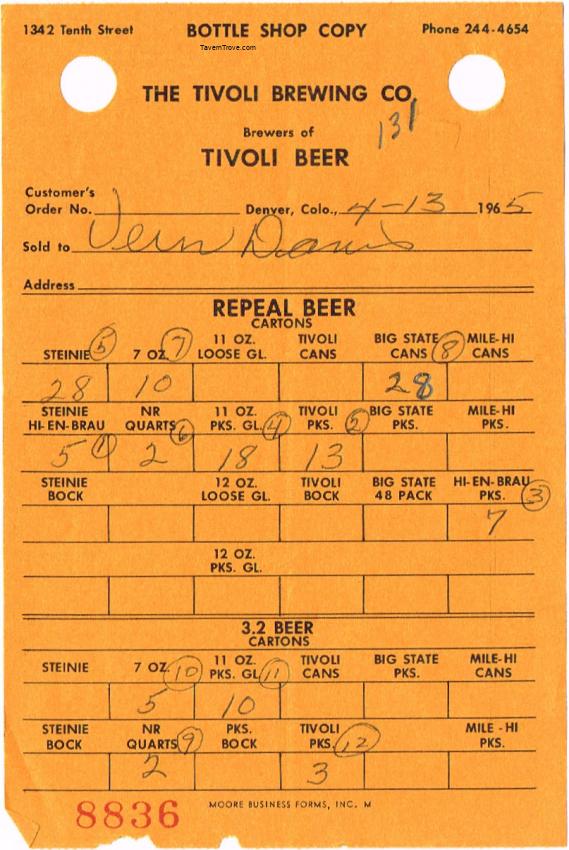 1342 Tenth Street BOTTLE SHOP COPY Phone 244-4654
TavernTrove.com
THE TIVOLI BREWING CO.
131
Brewers of
TIVOLI BEER
Customer's
Order No. Denver, Colo., 4-13 1965
Sold to Vern Davis
Address
REPEAL BEER
CARTONS
STEINIE 5 7 OZ. 7 11 OZ. LOOSE GL. TIVOLI CANS BIG STATE CANS 8 MILE-HI CANS
28 10 28
STEINIE HI-EN-BRAU NR QUARTS 6 11 OZ. PKS. GL. 4 TIVOLI PKS. 2 BIG STATE PKS. MILE-HI PKS.
5 1 2 18 13
STEINIE BOCK 12 OZ. LOOSE GL. TIVOLI BOCK BIG STATE 48 PACK HI-EN-BRAU PKS. 3
7
12 OZ. PKS. GL.
3.2 BEER
CARTONS
STEINIE 7 OZ. 10 11 OZ. PKS. GL. 11 TIVOLI CANS BIG STATE PKS. MILE-HI CANS
5 10
STEINIE BOCK NR QUARTS 9 PKS. BOCK TIVOLI PKS. 12 MILE-HI PKS.
2 3
8836 MOORE BUSINESS FORMS, INC. M